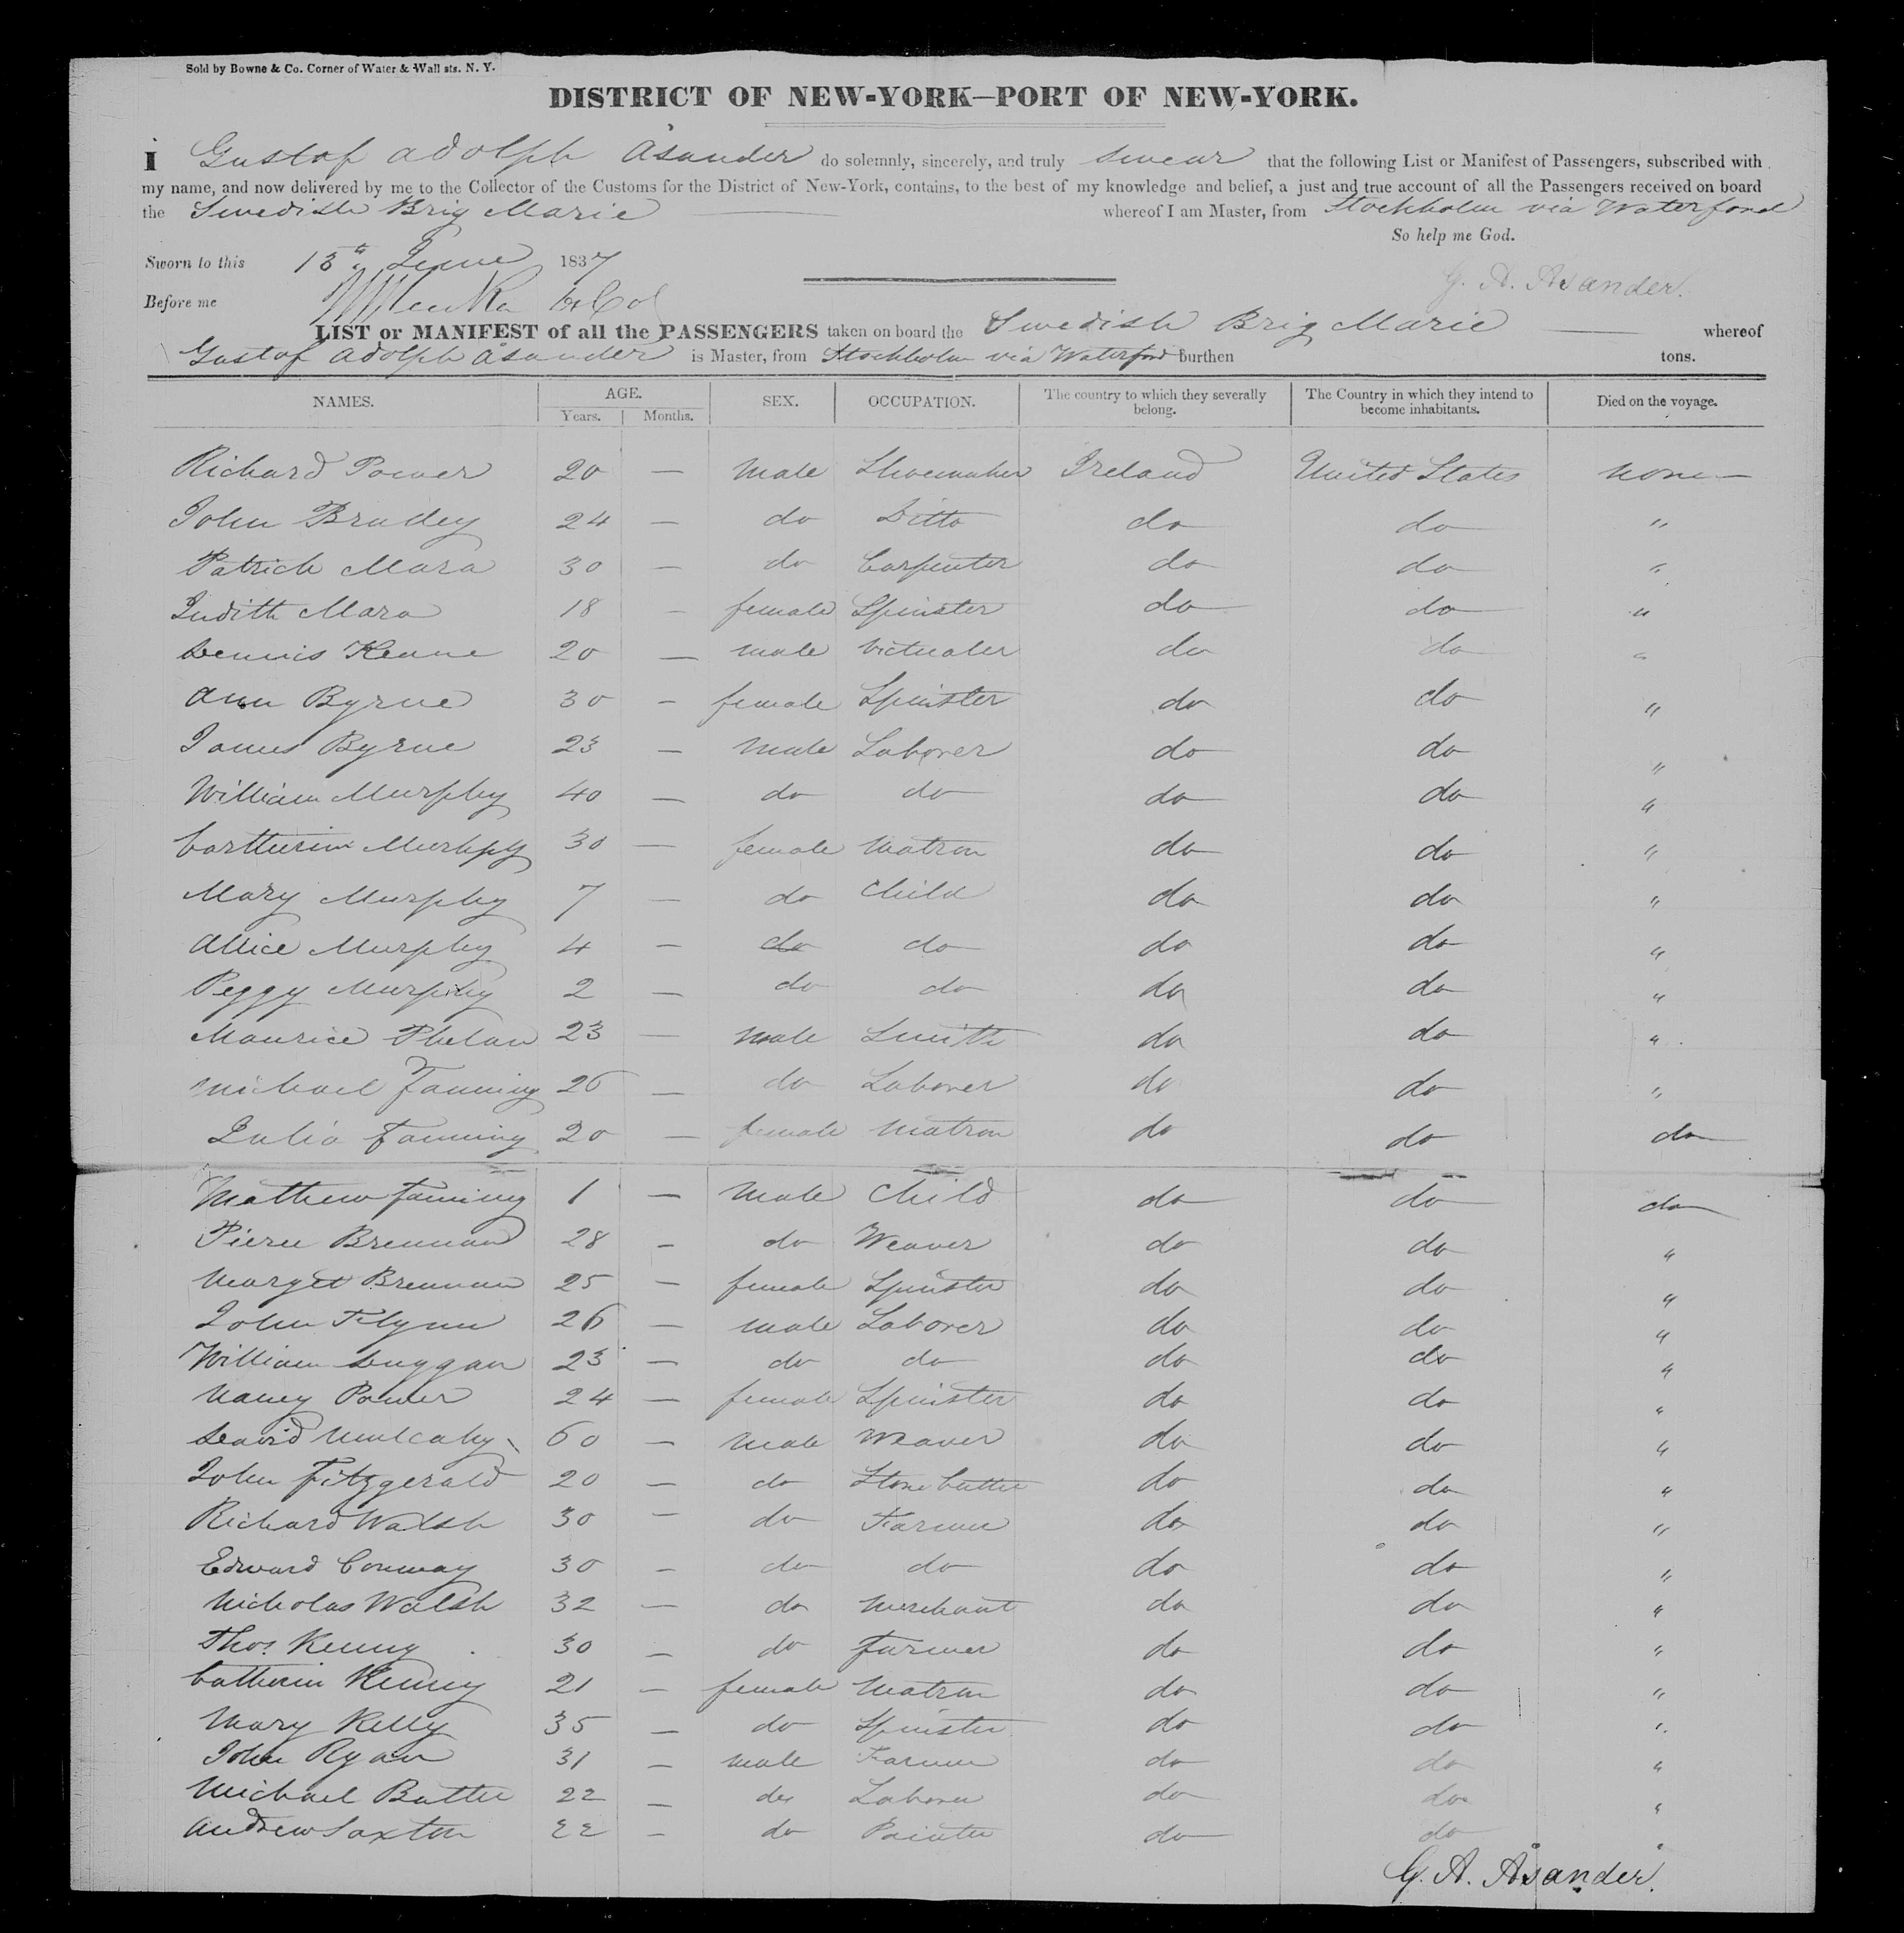 Sold by Bowne & Co. Corner of Water & Wall sts. N. Y.
DISTRICT OF NEW-YORK—PORT OF NEW-YORK.
I Gustaf Adolph Åsander do solemnly, sincerely, and truly swear that the following List or Manifest of Passengers, subscribed with
my name, and now delivered by me to the Collector of the Customs for the District of New-York, contains, to the best of my knowledge and belief, a just and true account of all the Passengers received on board
the Swedish Brig Marie whereof I am Master, from Stockholm via Waterford
So help me God.
Sworn to this June 1837
G. A. Åsander.
Before me
LIST or MANIFEST of all the PASSENGERS taken on board the Swedish Brig Marie whereof
Gustaf Adolph Åsander is Master, from Stockholm via Waterford burthen tons.
NAMES. AGE. Years. Months. SEX. OCCUPATION. The country to which they severally belong. The Country in which they intend to become inhabitants. Died on the voyage.
Richard Power 20 — Male Shoemaker Ireland United States none —
John Bradley 24 — do Ditto do do "
Patrick Mara 30 — do Carpenter do do "
Judith Mara 18 — female Spinster do do "
Dennis Keane 20 — male Victualer do do "
Ann Byrne 30 — female Spinster do do "
James Byrne 23 — Male Laborer do do "
William Murphy 40 — do do do do "
Murphy 30 — female Matron do do "
Mary Murphy 7 — do Child do do "
Allice Murphy 4 — do do do do "
Peggy Murphy 2 — do do do do "
Maurice Phelan 23 — male Smith do do "
Michael Fanning 26 — do Laborer do do "
Julia Fanning 20 — female Matron do do do
Mathew Fanning 1 — Male Child do do do
Pierce Brennan 28 — do Weaver do do "
Marget Brennan 25 — female Spinster do do "
John Flynn 26 — male Laborer do do "
William Duggan 23 — do do do do "
Nancy Power 24 — female Spinster do do "
David Mulcahy 60 — Male Weaver do do "
John Fitzgerald 20 — do Stone Cutter do do "
Richard Walsh 30 — do Farmer do do "
Edward Conway 30 — do do do do "
Nicholas Walsh 32 — do Merchant do do "
Thos. Kenny 30 — do farmer do do "
Catherin Kenny 21 — female Matron do do "
Mary Kelly 35 — do Spinster do do "
John Ryan 31 — male Farmer do do "
Michael Butler 22 — do Laborer do do "
Andrew Saxton 22 — do Painter do do "
G. A. Åsander.